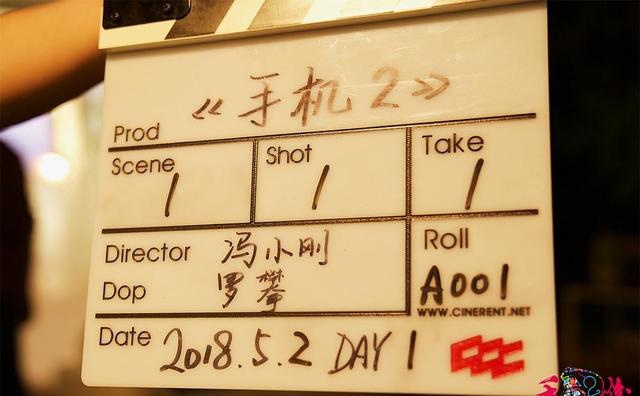 Prod 《手机2》
Scene Shot Take
1 1 1
Director 冯小刚
Roll
Dop 罗攀
A001
WWW.CINERENT.NET
Date 2018.5.2 DAY 1
CCC